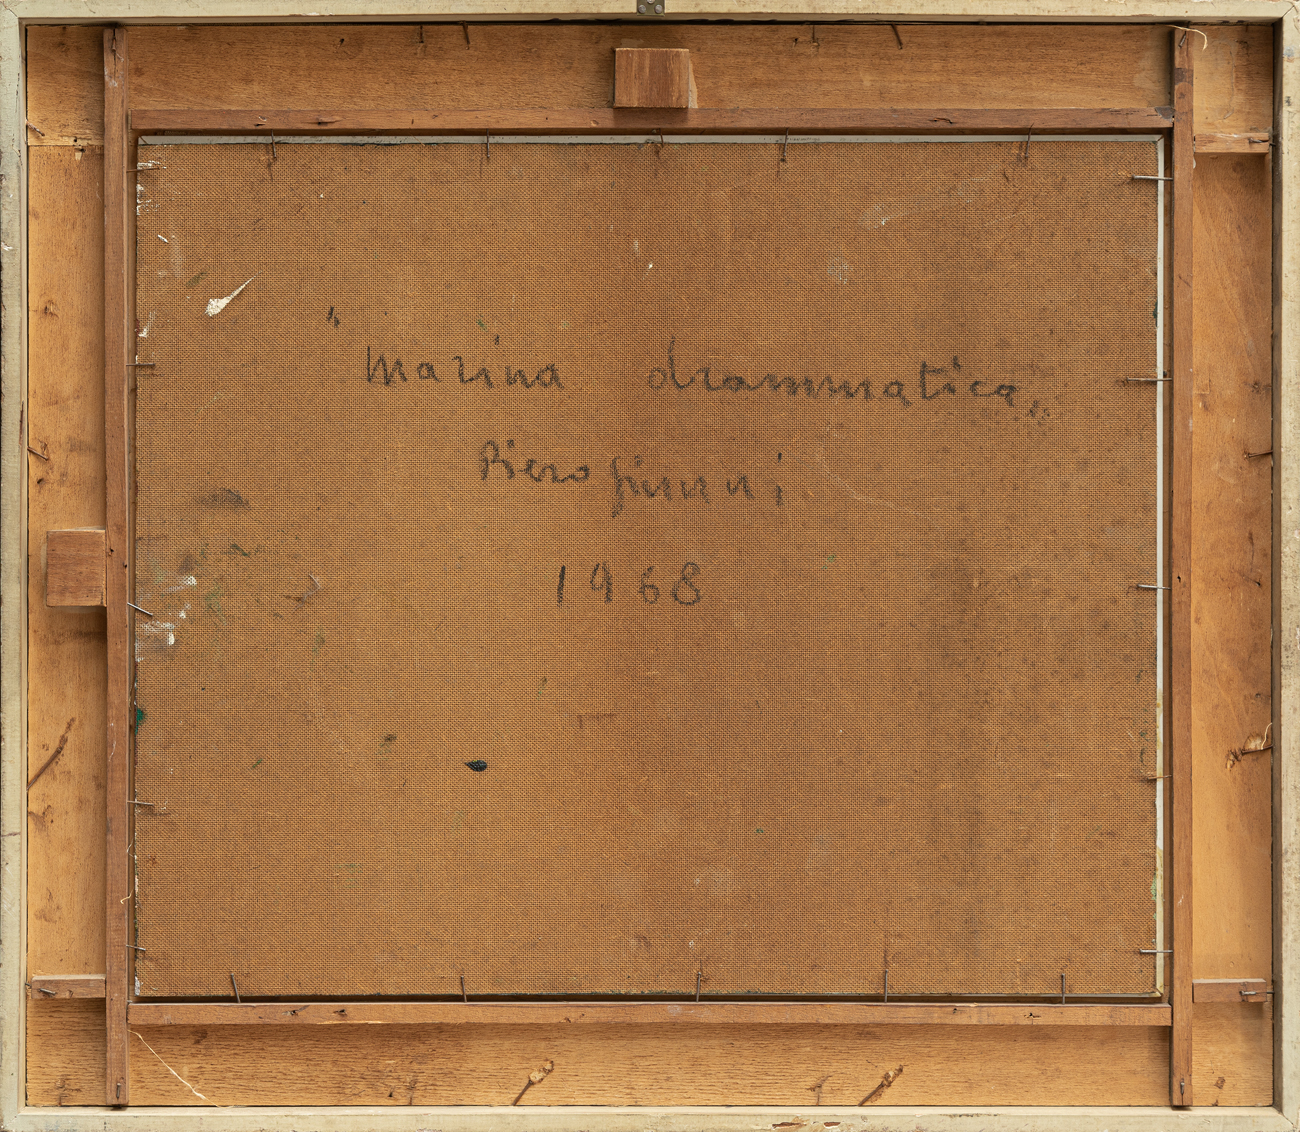 "Marina drammatica"
Piero
1968